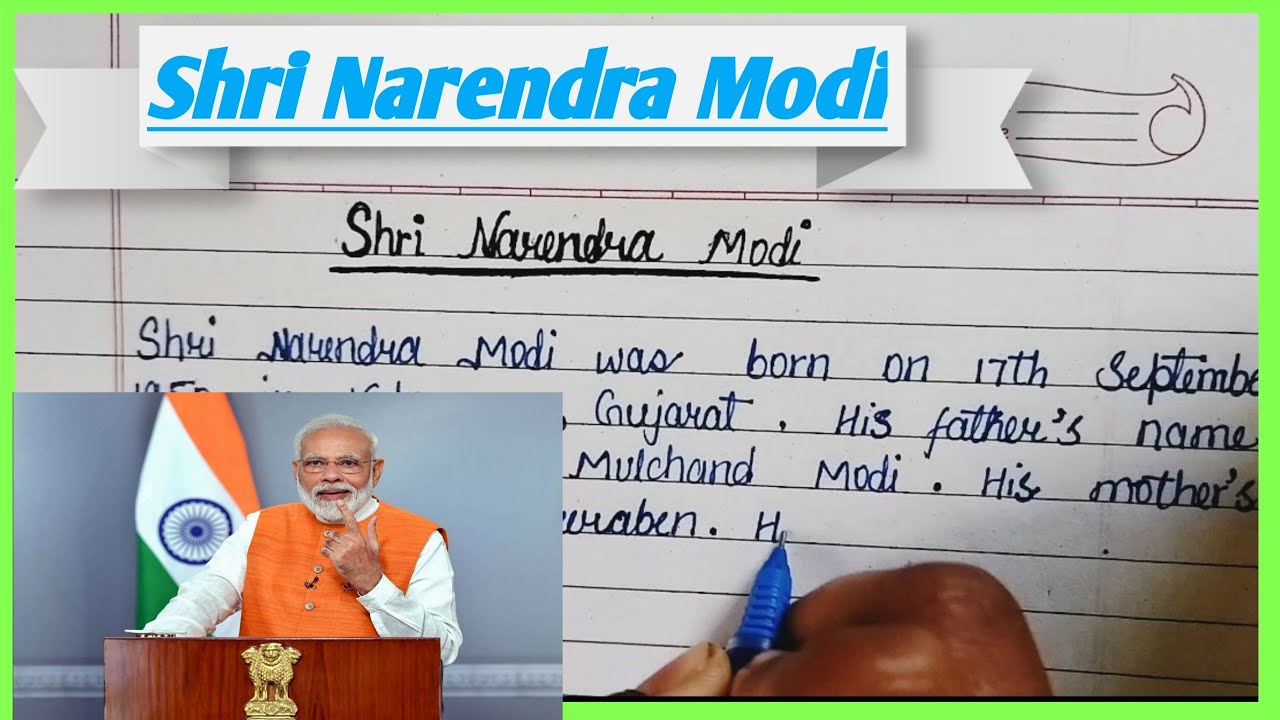 Shri Narendra Modi
Shri Narendra Modi
Shri Narendra Modi was born on 17th Septembe
Gujarat. His father's name
Mulchand Modi. His mother's
raben. H